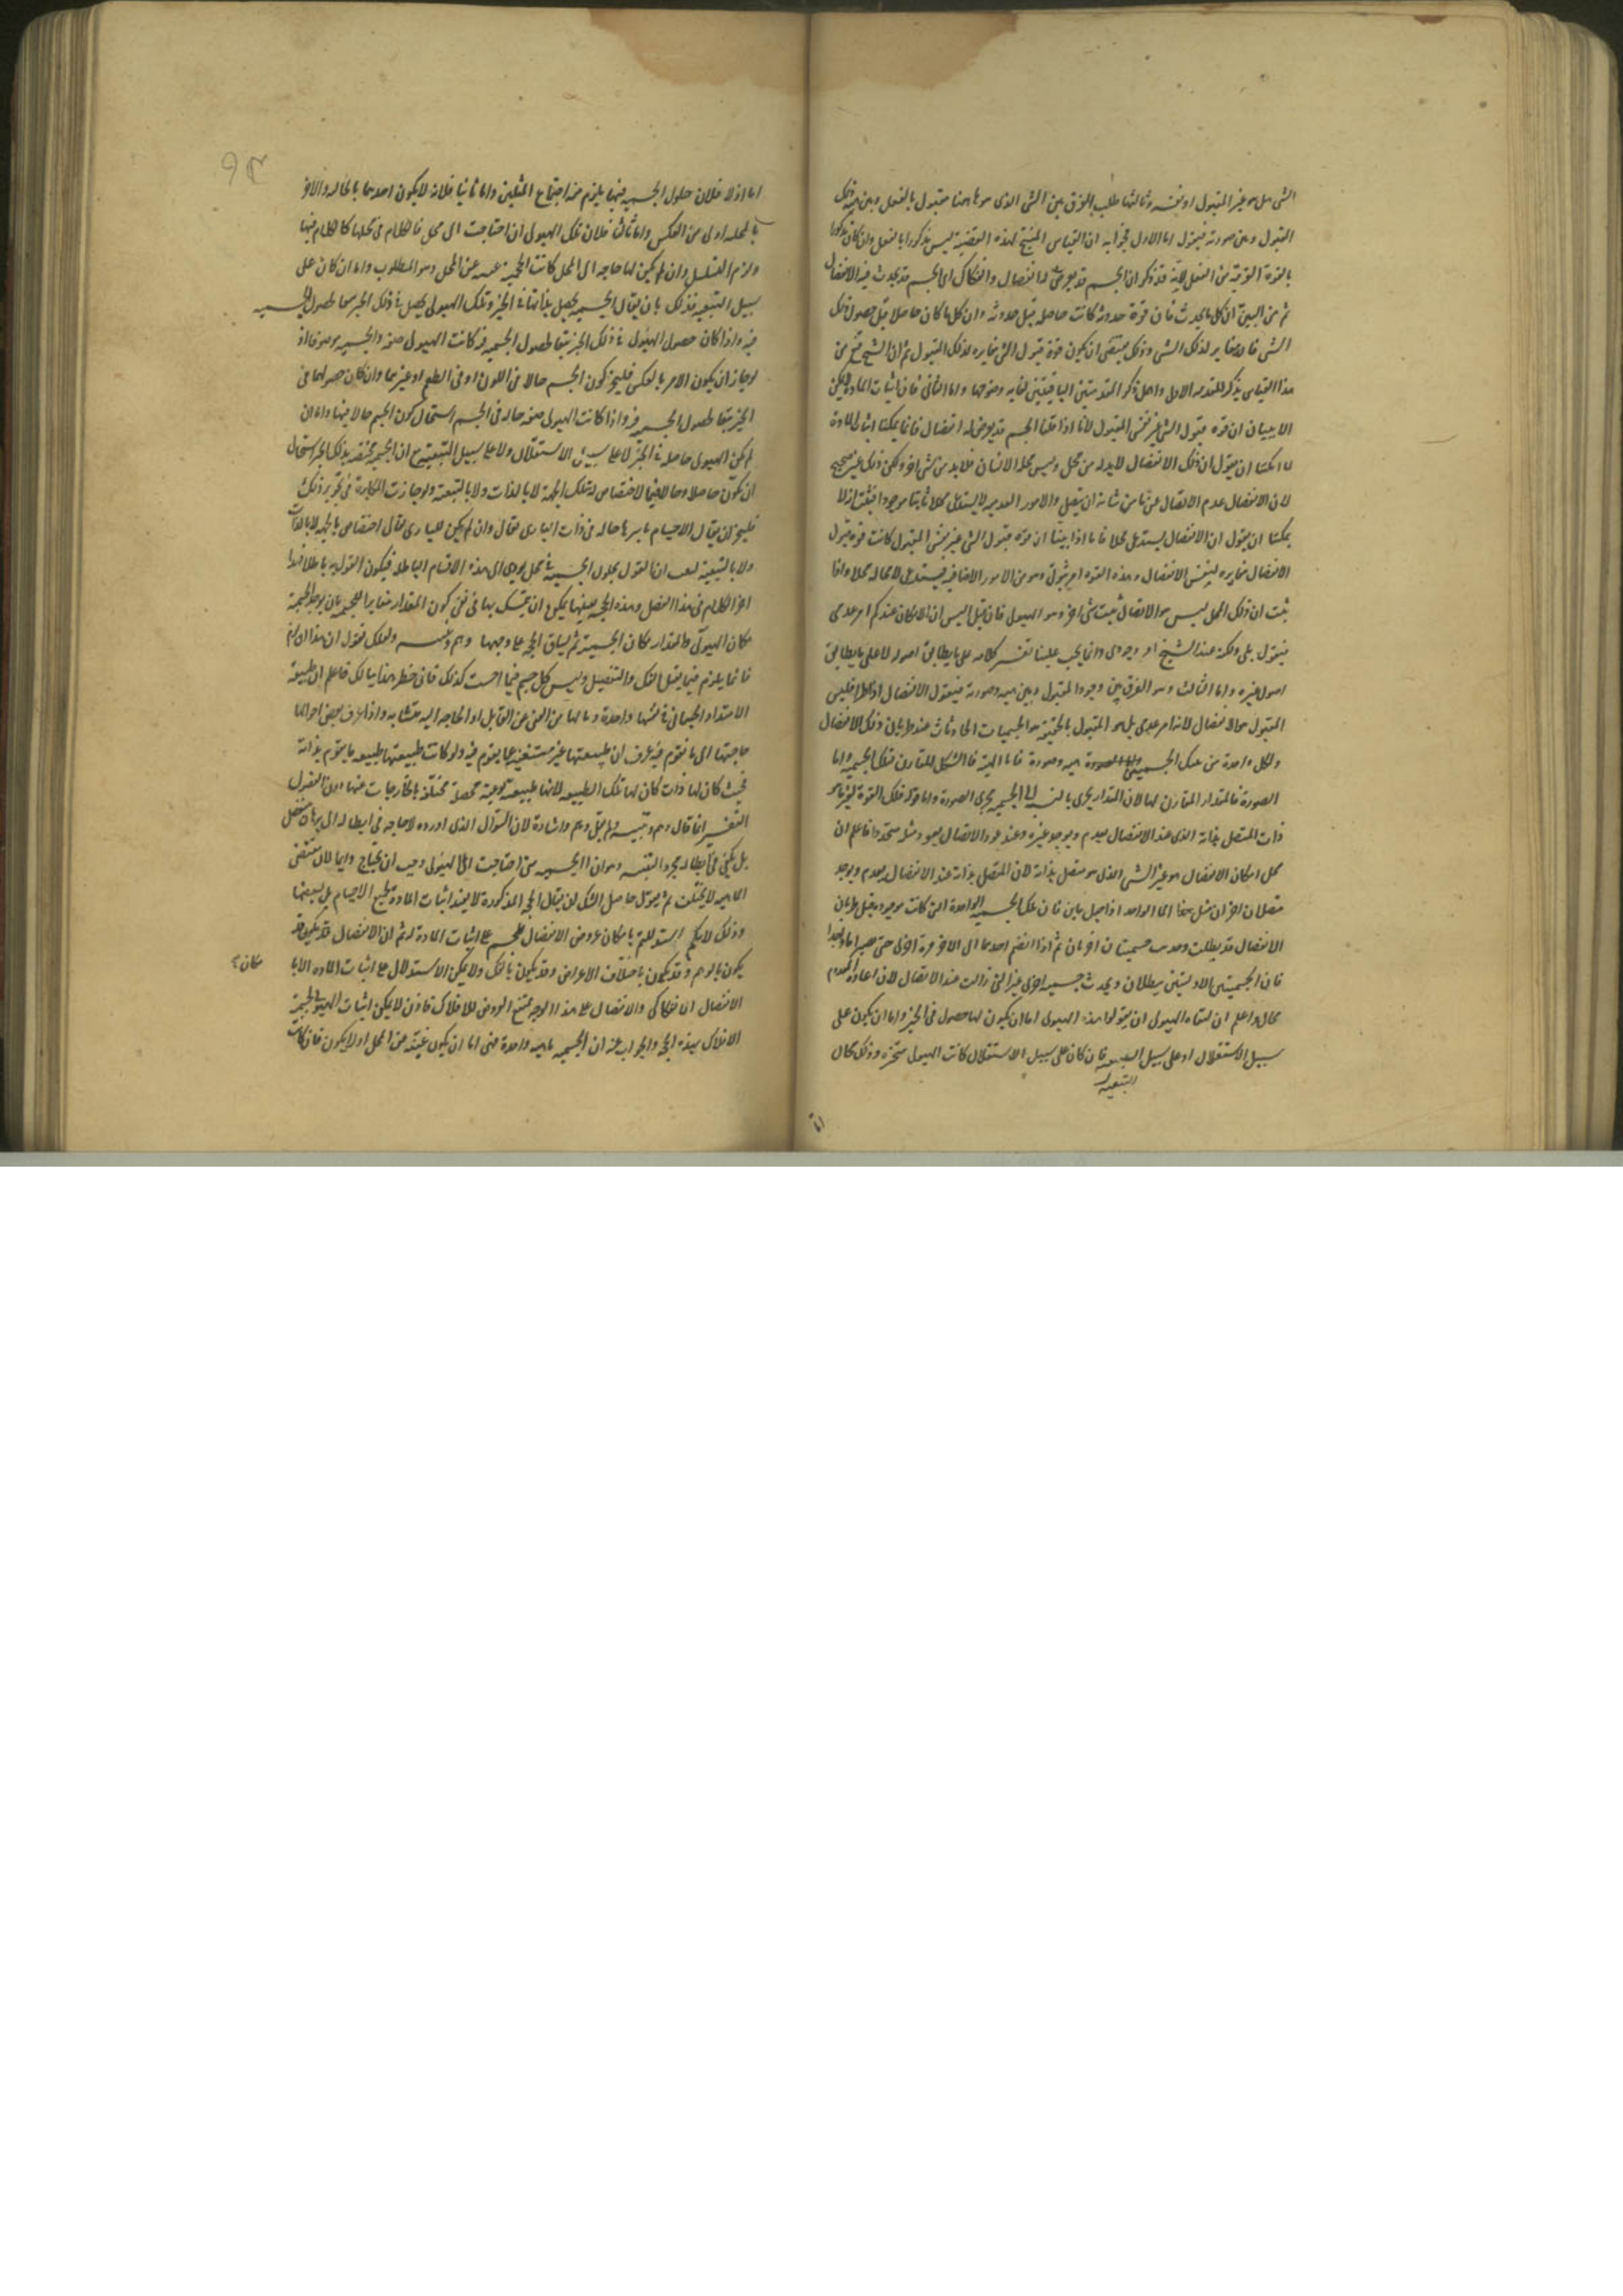 الشي هل هو غير المقبول او نفسه وثالثها طلب الفرق بين الشي الذي هو هاهنا مقبول بالفعل وبين هيئة ذلك
المقبول وبين صورته فنقول اما الاول فجوابه ان القياس المنتج لهذه القضية ليس مذكورا بالفعل وان كان مذكورا
بالقوة القريبة من الفعل لانه قد ذكر ان الجسم قد يعرض له انفصال وانفكاك اي الجسم قد يحدث فيه الانفصال
ثم من البين ان كل ما يحدث فان قوة حدوثه كانت حاصلة قبل حدوثه وان كل ما كان حاصلا قبل حصول ذلك
الشي فانه مغاير لذلك الشي وذلك يقتضي ان يكون قوة قبول الشي مغايرة لذلك المقبول ثم ان الشيخ
هذا القياس بذكر المقدمة الاولى واهمل ذكر المقدمتين الباقيتين لغاية وضوحها واما الثاني فان اثبات المادة لا يمكن
الا ببيان ان قوة قبول الشي غير نفس المقبول لانا اذا قلنا الجسم قد يعرض له انفصال فانما يمكننا اثبات المادة
لو امكننا ان نقول ان ذلك الانفصال لا بد له من محل وليس محله الاتصال فلا بد من شي اخر ولكن ذلك غير صحيح
لان الانفصال عدم الاتصال عما من شانه ان يتصل والامور العدمية لا يستدعي محلا ثابتا موجودا
يمكننا ان نقول ان الانفصال يستدعي محلا فاما اذا بينا ان قوة قبول الشي غير نفس المقبول كانت قوة قبول
الانفصال مغايرة لنفس الانفصال وهذه القوة امر ثبوتي وهو من الامور الاضافية فيستدعي لا محالة محلا واذا
ثبت ان ذلك المحل ليس هو الاتصال ثبت شي اخر وهو الهيولى فان قيل اليس ان الامكان عندكم امر عدمي
فنقول بلى ولكنه عند الشيخ امر وجودي وانما يجب علينا تفسير كلامه على ما يطابق اصوله لا على ما يطابق
اصول غيره واما الثالث وهو الفرق بين وجود المقبول وبين هيئته وصورته فنقول الانفصال اذا طرا فليس
المقبول هو الانفصال لانه امر عدمي بل المقبول بالحقيقة هو الجسميات الحادثات عند طريان ذلك الانفصال
ولكل واحدة من تلك الجسميات هيئة وصورة فاما الهيئة فالشكل المقارن لتلك الجسمية واما
الصورة فالمقدار المقارن لها لان المقدار يجري بالنسبة الى الجسمية مجرى الصورة واما قوله فتلك القوة لغير ما هو
ذات المتصل بذاته الذي عند الانفصال يعدم ويوجد غيره وعند عود الاتصال يعود مثله متجددا فاعلم ان
محل امكان الانفصال هو غير الشي الذي هو متصل بذاته لان المتصل بذاته عند الانفصال يعدم ويوجد
متصلان اخران مثل هذا الما الواحد اذا جعل ماين فان تلك الجسمية الواحدة التي كانت موجودة قبل طريان
الانفصال قد بطلت وحدثت جسميتان اخريان ثم اذا انضم احدهما الى الاخر مرة اخرى حتى يصير ماء واحدا
فان الجسميتين الاوليتين يبطلان ويحدث جسمية اخرى غير التي زالت عند الانفصال لان اعادة المعدوم
محال واعلم ان لنفاة الهيولى ان يقولوا هذه الهيولى اما ان يكون لها حصول في الحيز واما ان يكون على
سبيل الاستقلال او على سبيل التبعية فان كان على سبيل الاستقلال كانت الهيولى متحيزة وذلك محال
التبعية
اما اولا فلان حلول الجسمية فيها يلزم منه اجتماع المثلين واما ثانيا فلانه لا يكون احدهما بالحالية والاخر
بالمحلية اولى من العكس واما ثالثا فلان تلك الهيولى ان احتاجت الى محل فالكلام في محلها كالكلام فيها
ولزم التسلسل وان لم يكن لها حاجة الى المحل كانت الجسمية غنية عن المحل وهو المطلوب واما ان كان على
سبيل التبعية فذلك بان يقال الجسمية يحصل بذاتها في الحيز وتلك الهيولى يحصل في ذلك الحيز تبعا لحصول الجسمية
فيه واذا كان حصول الهيولى في ذلك الحيز تبعا لحصول الجسمية فيه كانت الهيولى صفة والجسمية موصوفة اذ
لو جاز ان يكون الامر بالعكس فليجز كون الجسم حالا في اللون او في الطعم او غيرهما وان كان حصولهما في
الحيز تبعا لحصول الجسمية فيه واذا كانت الهيولى صفة حالة في الجسم استحال كون الجسم حالا فيها واما ان
لم يكن الهيولى حاصلة في الحيز لا على سبيل الاستقلال ولا على سبيل التبعية مع ان الجسم مختص بذلك الحيز استحال
ان يكون حاصلا وحالا فيما لا اختصاص له بتلك الجهة لا بالذات ولا بالتبعية ولو جازت المكابرة في تجويز ذلك
فليجز ان يقال الاجسام باسرها حالة في ذات الباري تعالى وان لم يكن للباري تعالى اختصاص بالجهة لا بالذات
ولا بالتبعية فثبت ان القول بحلول الجسمية في محل يودي الى هذه الاقسام الباطلة فيكون القول به باطلا فهذا
اخر الكلام في هذا الفصل وهذه الحجة بعينها يمكن ان يتمسك بها في نفي كون المقدار مغايرا للجسم بان يوخذ الجسمية
مكان الهيولى والمقدار مكان الجسمية ثم يساق الحجة على وجهها وهم وتنبيه ولعلك تقول ان هذا ان لزم
فانما يلزم فيما يقبل الفك والتفصيل وليس كل جسم فيما احسب كذلك فان خطر هذا ببالك فاعلم ان طبيعة
الامتداد الجسماني في نفسها واحدة وما لها من الغنى عن القابل او الحاجة اليه متشابه واذا عرف بعض احوالها
حاجتها الى ما تقوم فيه عرف ان طبيعتها غير مستغنية عما يقوم فيه ولو كانت طبيعتها طبيعة ما يقوم بذاته
فحيث كان لها ذات كان لها تلك الطبيعة لانها طبيعة نوعية محصلة مختلفة بالخارجات عنها دون الفصول
التفسير انما قال وهم وتنبيه ولم يقل وهم واشارة لان السؤال الذي اورده لا حاجة في ابطاله الى برهان منفصل
بل يكفي في ابطاله مجرد التنبيه وهو ان الجسمية متى احتاجت الى الهيولى وجب ان يحتاج دايما لان مقتضى
الماهية لا يختلف ثم نقول حاصل الشك ان يقال الحجة المذكورة لا يفيد اثبات المادة لجميع الاجسام بل لبعضها
وذلك لانكم استدللتم بامكان عروض الانفصال للجسم على اثبات المادة له ثم ان الانفصال قد يكون
يكون بالوهم وقد يكون باختلاف الاعراض وقد يكون بالفك ولا يمكن الاستدلال على اثبات المادة الا بامكان
الانفصال الانفكاكي والانفصال على هذا الوجه ممتنع العروض للافلاك فاذن لا يمكن اثبات الهيولى لجسمية
الافلاك بهذه الحجة والجواب عنه ان الجسمية ماهية واحدة فهي اما ان يكون غنية عن المحل او لا يكون فان كانت